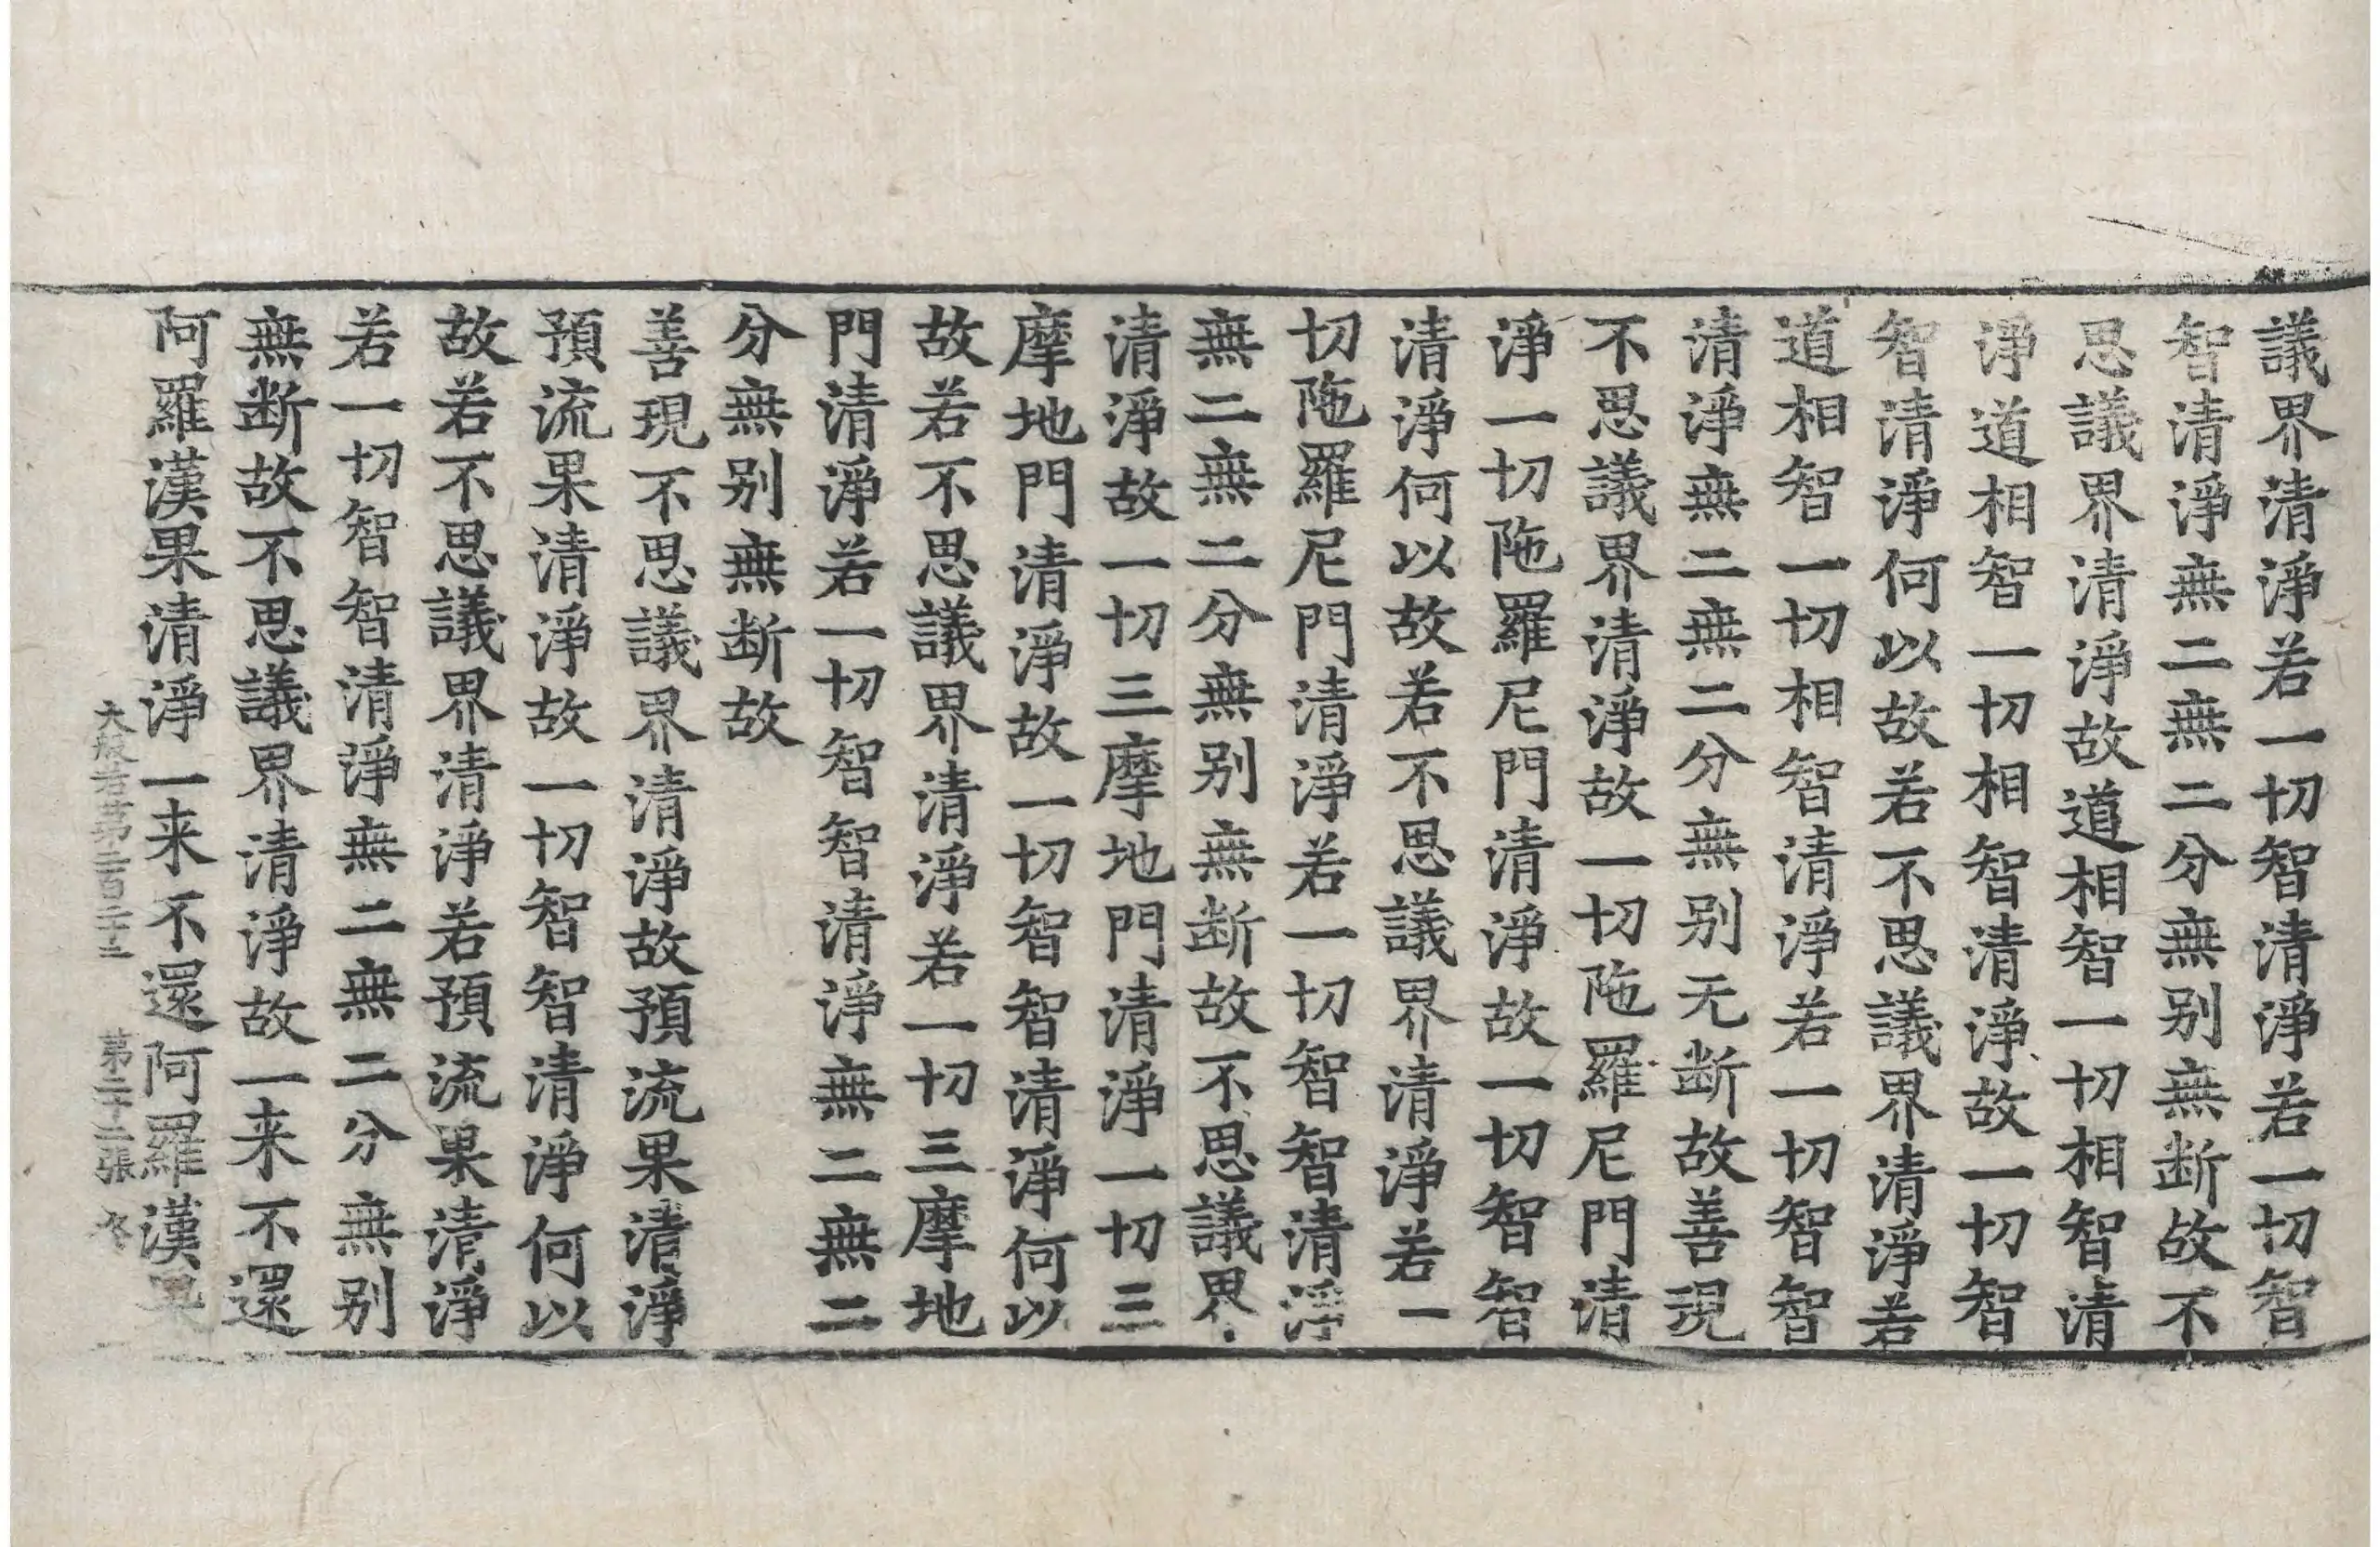 議界清淨若一切智清淨若一切智
智清淨無二無二分無別無断故不
思議界清淨故道相智一切相智清
淨道相智一切相智清淨故一切智
智清淨何以故若不思議界清淨若
道相智一切相智清淨若一切智智
清淨無二無二分無別无断故善現
不思議界清淨故一切陁羅尼門清
淨一切陁羅尼門清淨故一切智智
清淨何以故若不思議界清淨若一
切陁羅尼門清淨若一切智智清淨
無二無二分無別無断故不思議界
清淨故一切三摩地門清淨一切三
摩地門清淨故一切智智清淨何以
故若不思議界清淨若一切三摩地
門清淨若一切智智清淨無二無二
分無別無断故
善現不思議界清淨故預流果清淨
預流果清淨故一切智智清淨何以
故若不思議界清淨若預流果清淨
若一切智智清淨無二無二分無別
無断故不思議界清淨故一来不還
阿羅漢果清淨一来不還阿羅漢果
大般若第二百二十三 第二十二張